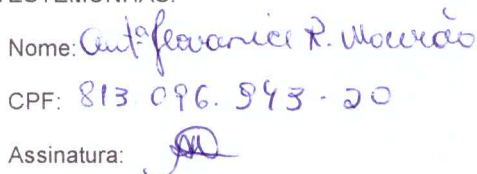 TESTEMUNHAS:
Nome: Antª Geovanice R. Mourão
CPF: 813 096. 943 - 20
Assinatura: